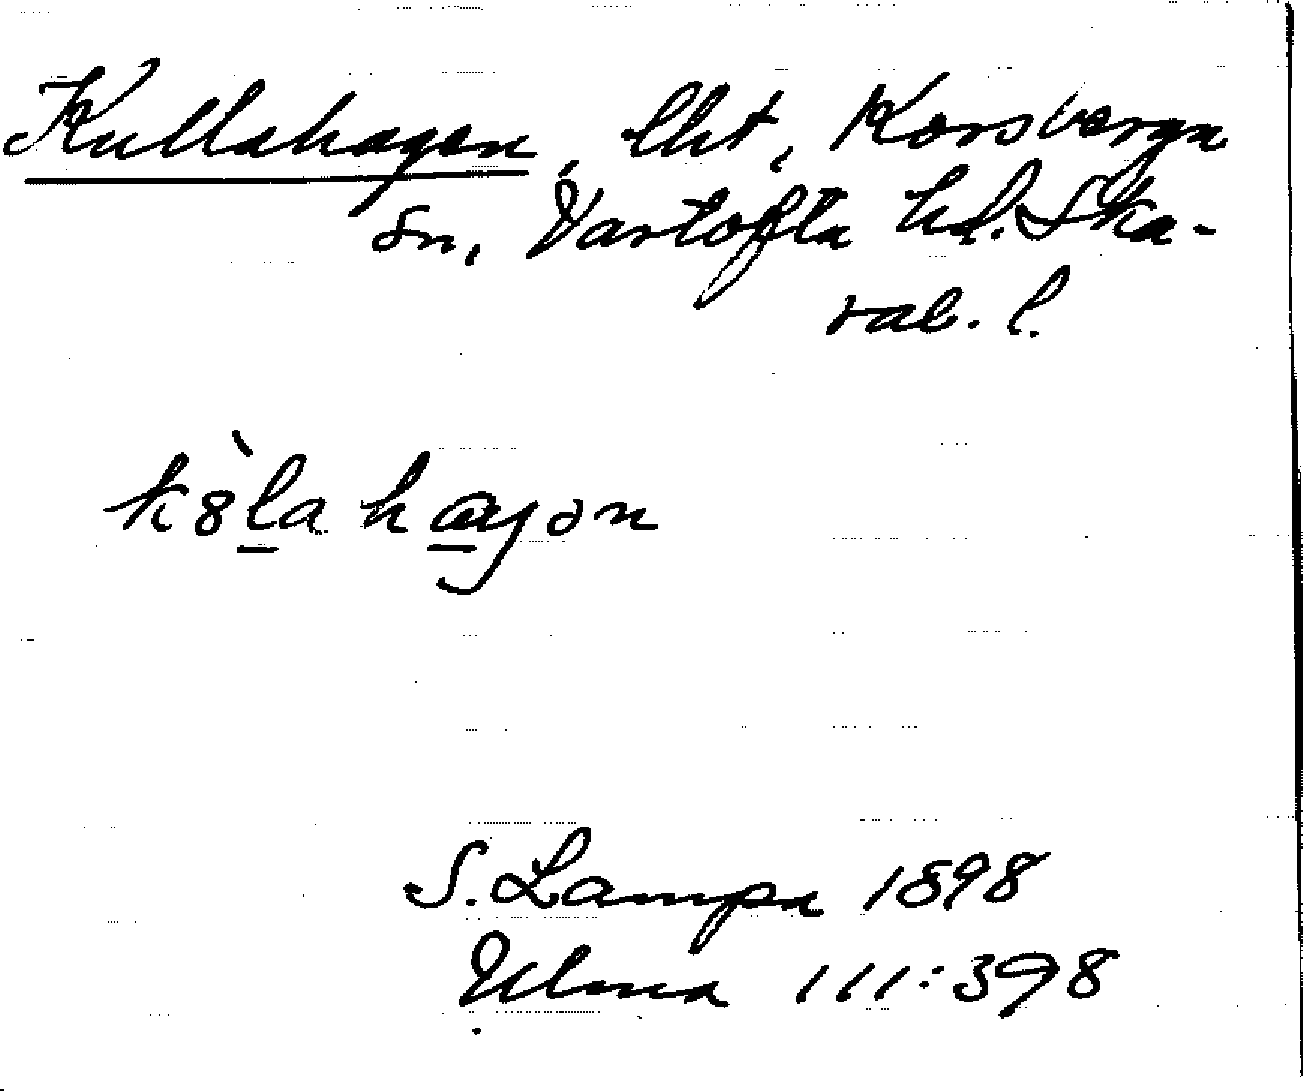 Kullahagen, lht, Korsberga
sn, Vartofta hd. Ska-
rab. l.
kòla hagən
S. Lampa 1898
Ulma 111:398